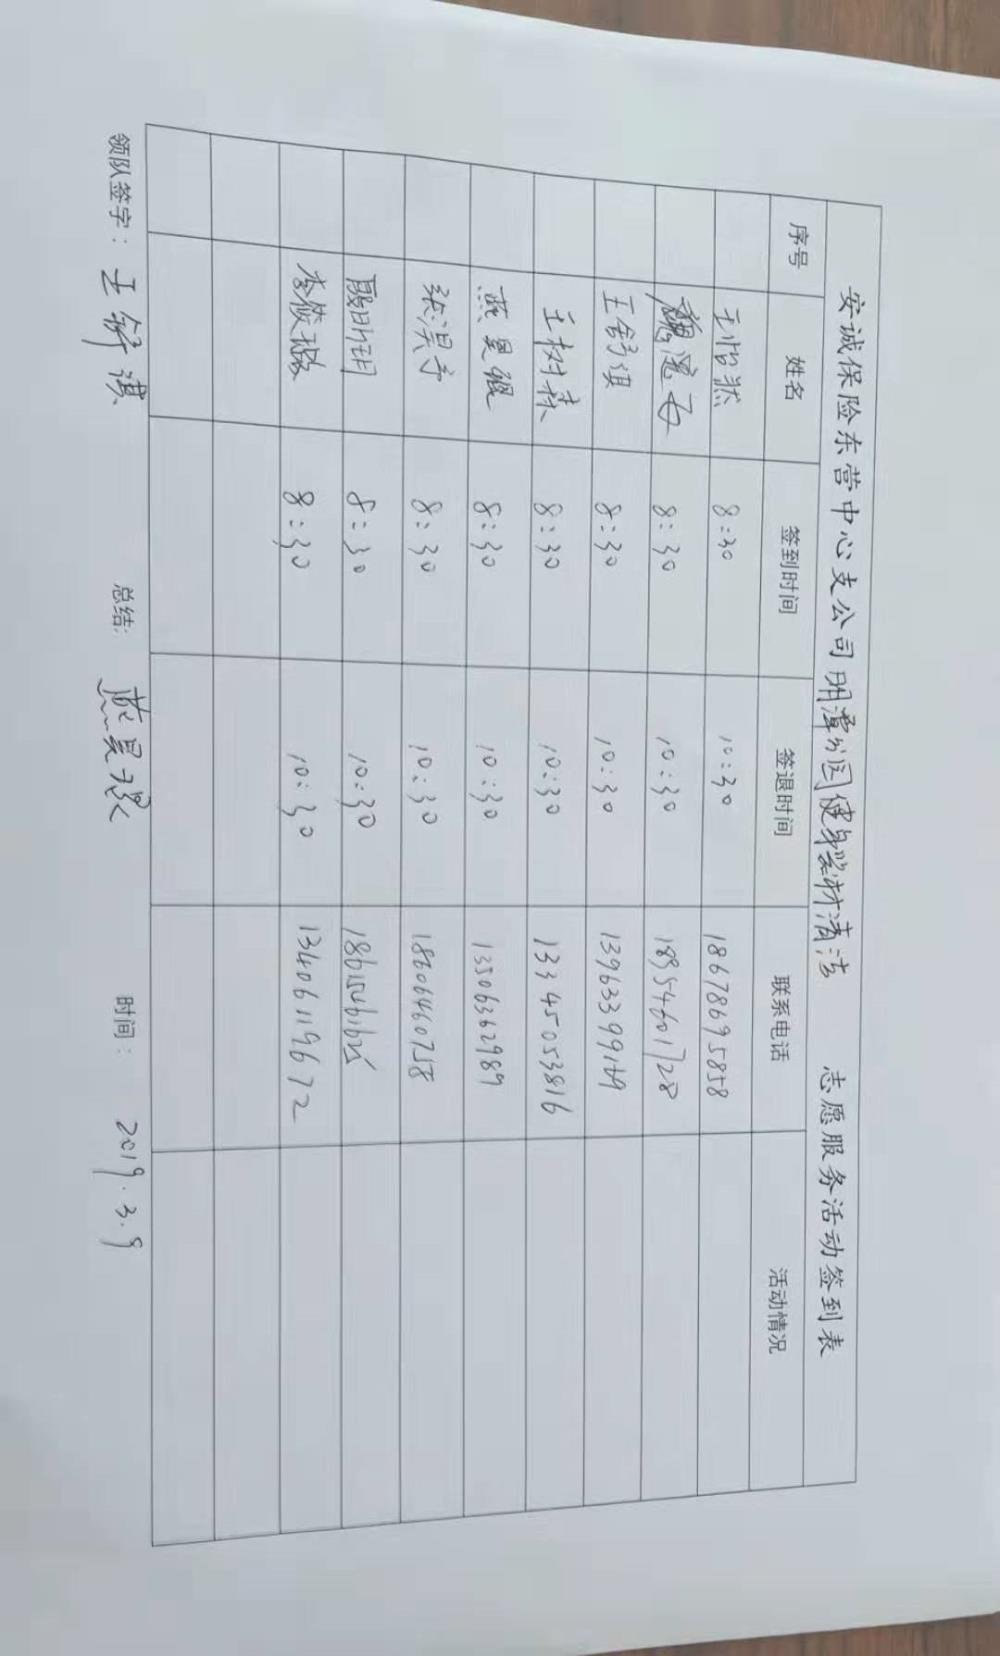 安诚保险东营中心支公司明潭公园健身器材清洁 志愿服务活动签到表
序号 姓名 签到时间 签退时间 联系电话 活动情况
王怡然 8:30 10:30 18678695858
魏 8:30 10:30 18954601728
王舒淇 8:30 10:30 13963399169
王树森 8:30 10:30 13345053816
燕昊缊 8:30 10:30 13506362989
张淏予 8:30 10:30 18606460758
8:30 10:30
李筱璐 8:30 10:30 13406119672
领队签字: 王舒淇 总结: 时间: 2019.3.9